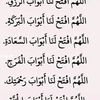 اللَّهُمَّ افْتَحْ لَنَا أَبْوَابَ الرِّزْقِ.
اللَّهُمَّ افْتَحْ لَنَا أَبْوَابَ السَّعَادَةِ.
اللَّهُمَّ افْتَحْ لَنَا أَبْوَابَ الْفَرَجِ.
اللَّهُمَّ افْتَحْ لَنَا أَبْوَابَ الْبَرَكَةِ.
اللَّهُمَّ افْتَحْ لَنَا أَبْوَابَ رَحْمَتِكَ.